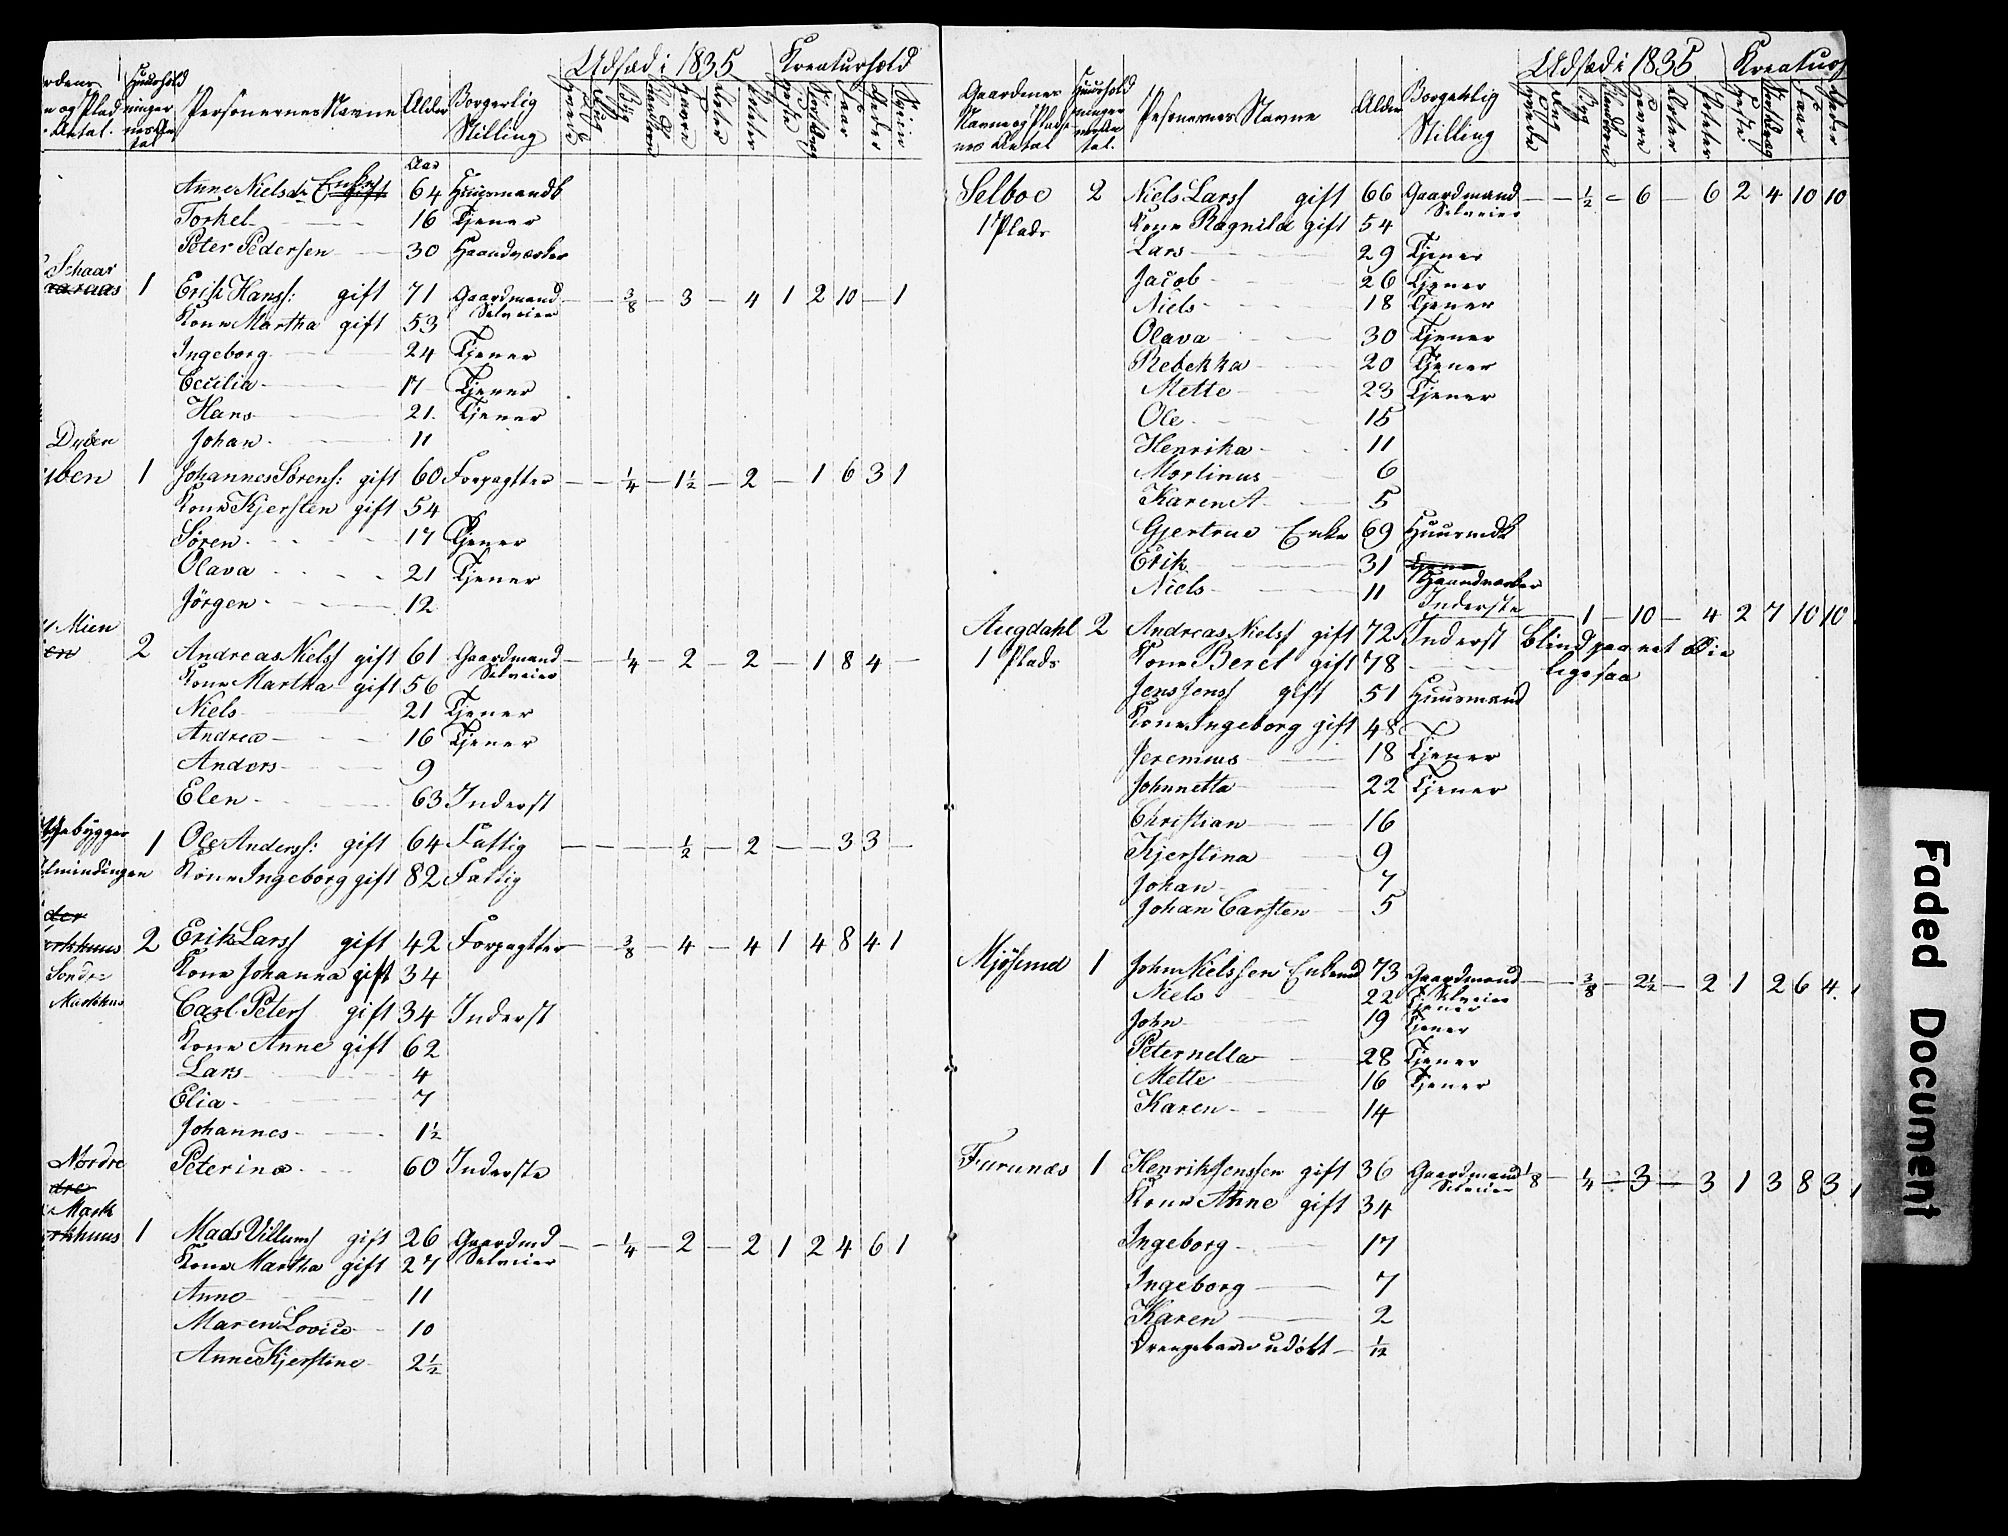 Udsæd i 1835 Kreaturhold
Personernes Navne Alder Borgerlig Stilling
Byg Havre Erter Poteter Heste Faar Geder Sviin
Aar
Anne Nielsd: Enke 64 Huusmandk
Torkel 16 Tjener
Peter Pedersen 30 Haandværker
Schaar
1 Erik Hanss: gift 71 Gaardmand Selveier 3/8 3 4 1 2 10 1
Kone Martha gift 53
Ingeborg 24 Tjener
Cecilia 17 Tjener
Hans 21 Tjener
Johan 11
Dyben
yben 1 Johannes Sørens: gift 60 Forpagtter 1/4 1½ 2 1 6 3 1
Kone Kjersten gift 54
Søren 17 Tjener
Olava 21 Tjener
Jørgen 12
Mien
en 2 Andreas Nielss gift 61 Gaardmand Selveier 1/4 2 2 1 8 4
Kone Martha gift 56
Niels 21 Tjener
Andrea 16 Tjener
Anders 9
Elen 63 Inderst
1 Ole Anderss: gift 64 Fattig ½ 2 3 3
lmindingen Kone Ingeborg gift 82 Fattig
rkhuus 2 Erik Larss gift 42 Forpagtter 3/8 4 4 1 4 8 4 1
Søndre Kone Johanna gift 34
Markhus Carl Peters gift 34 Inderst
Kone Anne gift 62
Lars 4
Elia 7
Johannes 1½
Nordre Peterina 60 Inderste
dre
Mark
rkhuus 1 Mads Villums gift 26 Gaardmd Selveier 1/4 2 2 1 2 4 6 1
Kone Martha gift 27
Anne 11
Maren Lovise 10
Anne Kjerstine 2½
Udsæd i 1835
Gaardenes Navne og Pladsenes Antal Personernes Navne Alder Borgerlig Stilling
Byg Havre Erter Poteter Heste Faar Geder
Selboe 2 Niels Larss gift 66 Gaardmand Selveier ½ 6 6 2 4 10 10
1 Plads Kone Ragnild gift 54
Lars 29 Tjener
Jacob 26 Tjener
Niels 18 Tjener
Olava 30 Tjener
Rebekka 20 Tjener
Mette 23 Tjener
Ole 15
Henrika 11
Mortinus 6
Karen A 5
Gjertrue Enke 69 Huusmdk
Erik 31 Tjener Haandværker
Niels 11 Inderste 1 10 4 2 7 10 10
Augdahl 2 Andreas Nielss gift 72 Inderst Blind paa et Øie
1 Plads Kone Beret gift 78 ligesaa
Jens Jenss gift 51 Huusmand
Kone Ingeborg gift 48
Jeremias 18 Tjener
Johnnetta 22 Tjener
Christian 16
Kjerstina 9
Johan 7
Johan Carsten 5
Mjösund 1 John Nielssen Enkemd 73 Gaardmand Selveier 3/8 2½ 2 1 2 6 4
Niels 22 Tjener
John 19 Tjener
Peternella 28 Tjener
Mette 16 Tjener
Karen 14
Furunæs 1 Henrik Jenssen gift 36 Gaardmand Selveier 1/8 1/4 3 3 1 3 8 3
Kone Anne gift 34
Ingeborg 17
Ingeborg 7
Karen 2
Drengebarn udøbt 1/12
Faded Document